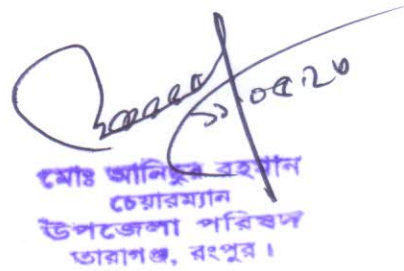 মোঃ আনিছুর রহমান
চেয়ারম্যান
উপজেলা পরিষদ
তারাগঞ্জ, রংপুর।